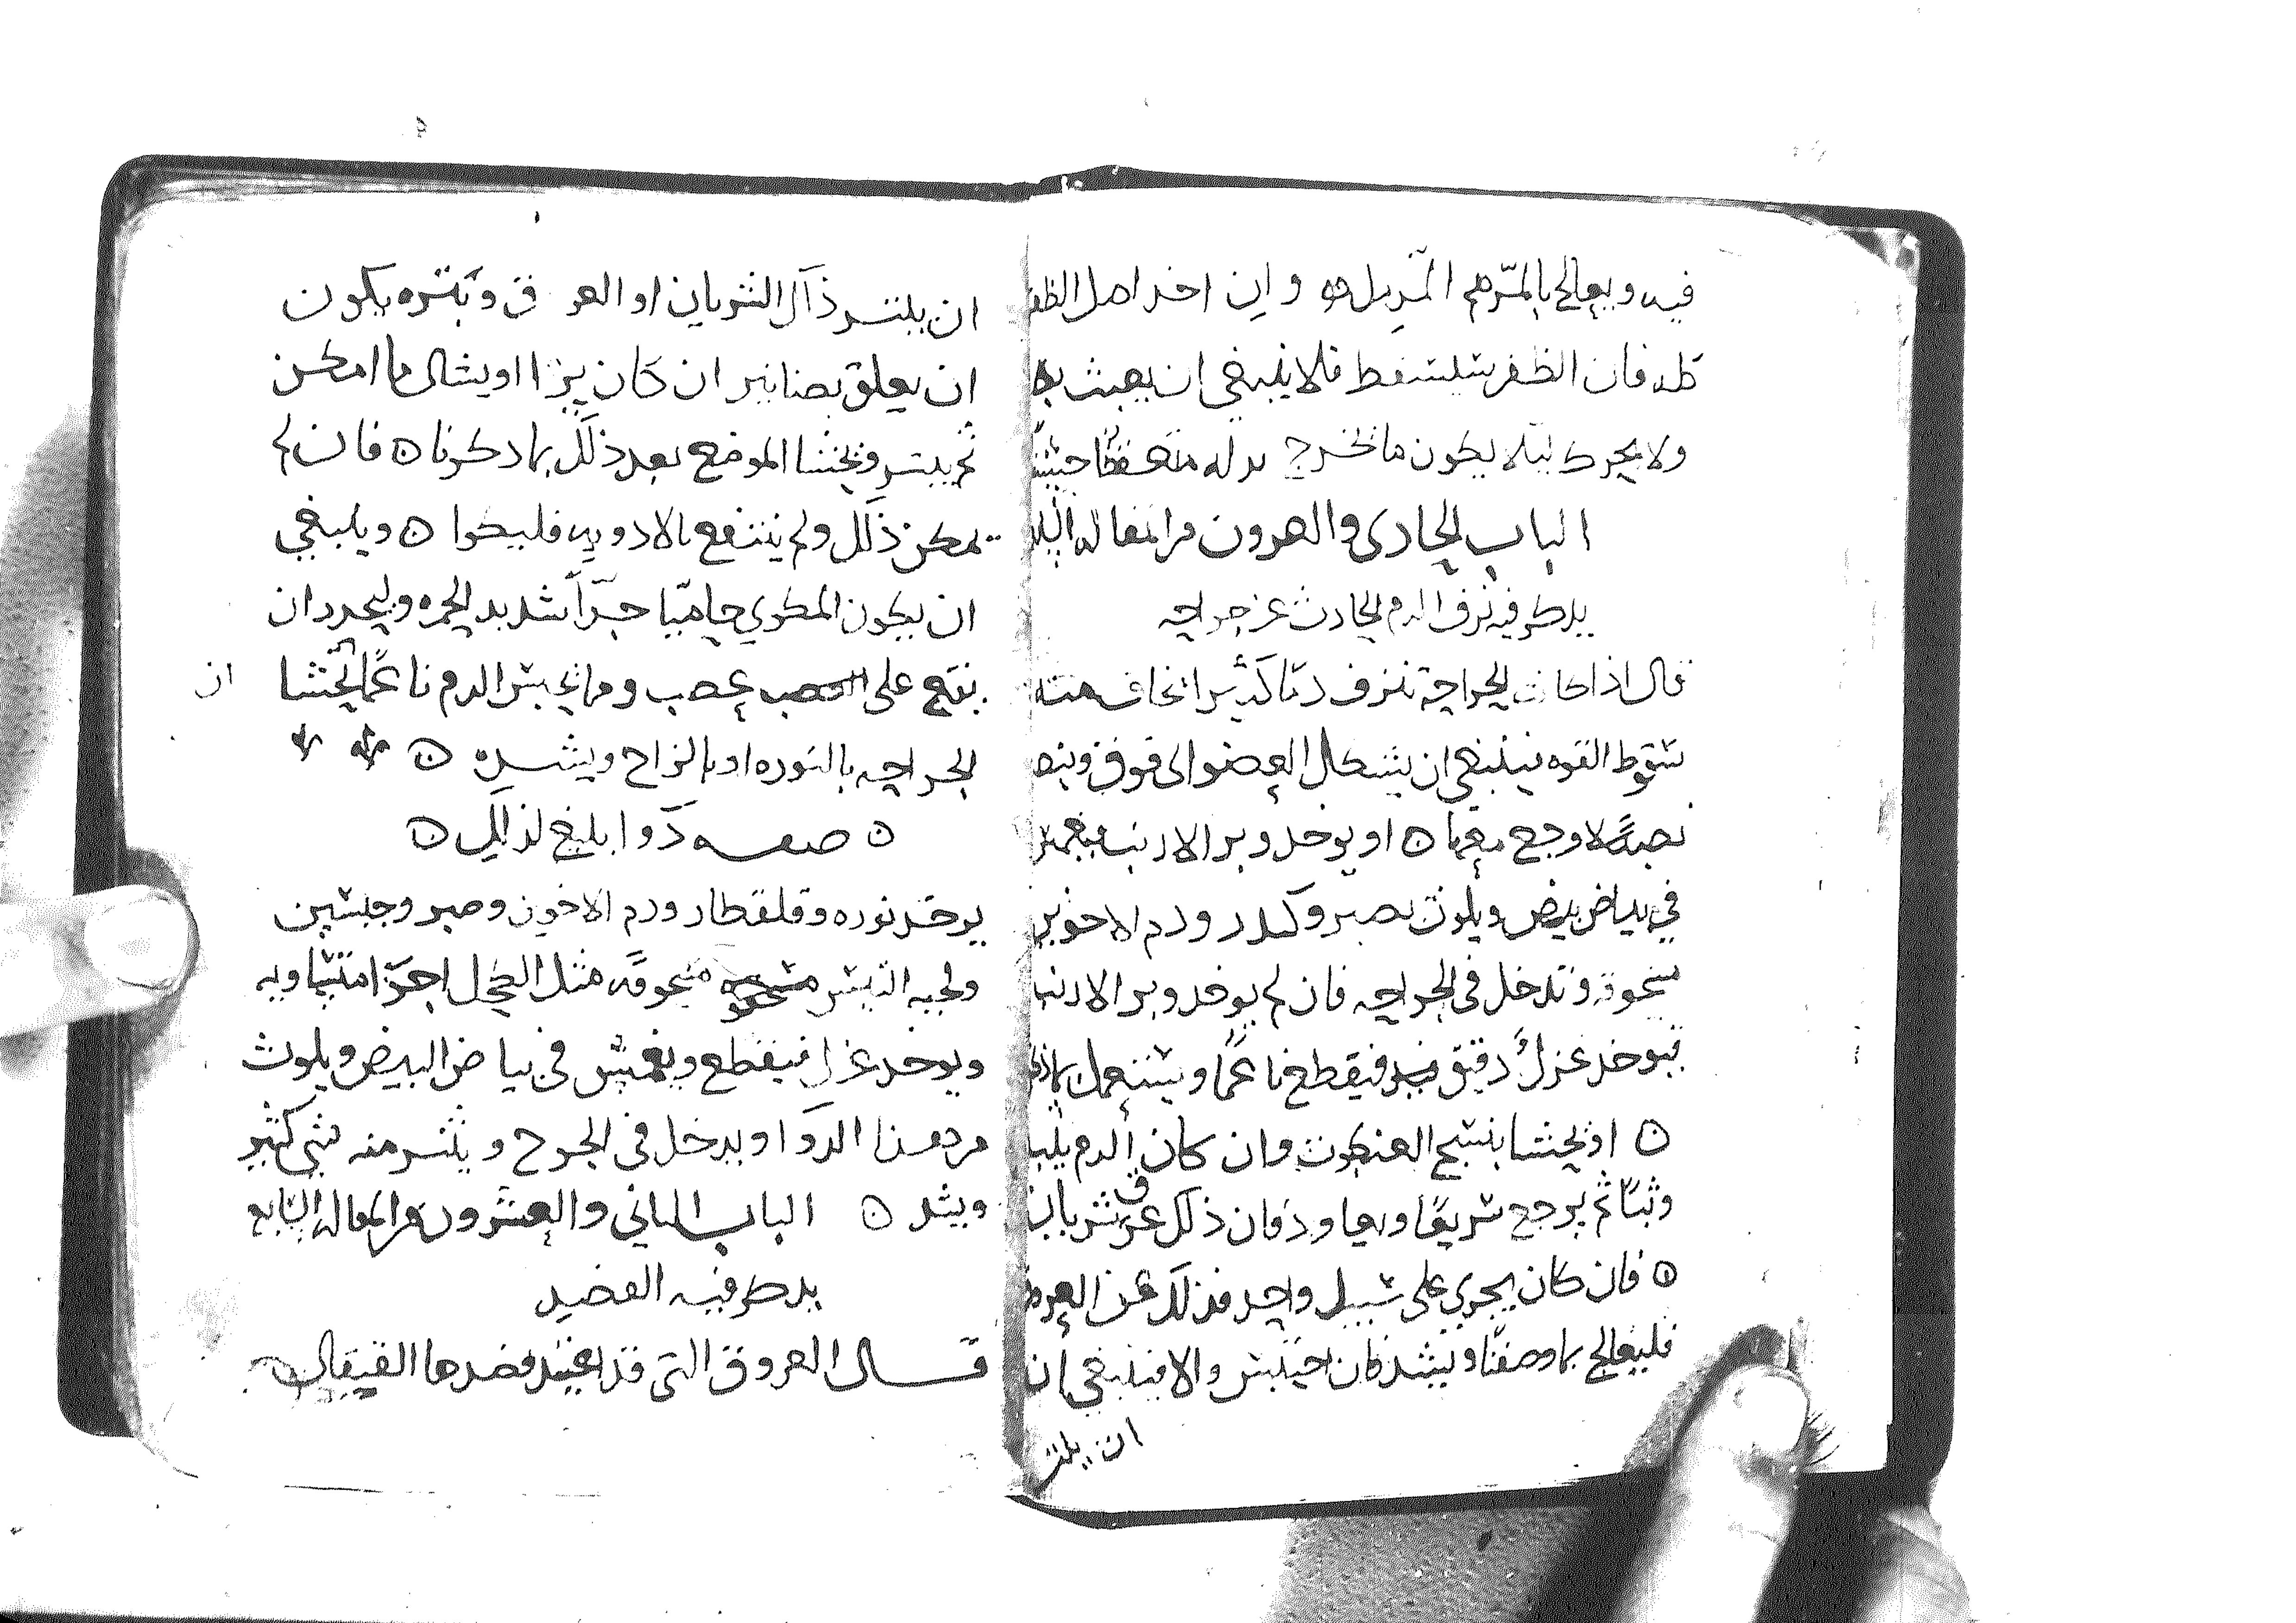 فيه ويعالج بالمرهم المرمل وان اخد اصل الظفر
كله فان الظفر سيسقط فلا ينبغي ان يعبث به
ولا يحرك ليلا يكون ما يخرج بدله متعقفا
الباب الحادى والعشرون من المقاله
يدكر فيه نزف الدم الحادث عن جراحه
قال اذا كانت الجراحة تنزف دما كثيرا تخاف منه
سقوط القوه فينبغي ان يشكل العضو الى فوق
نصبةً لا وجع معها ○ او يوخد وبر الارنب فيغمس
في بياض بيض ويلوث بصبر وكندر ودم الاخوين
مسحوقة وتدخل في الجراحه فان لم يوخد وبر الارنب
فيوخد غزل دقيق فيقطع ناعمًا ويستعمل
○ او يحشا بنسج العنكبوت وان كان الدم
وثبًا ثم يرجع سريعًا ويعاود فان ذلك عرق شريان
○ فان كان يجري على سبيل واحد فذلك عن العرق
فليعالج بما وصفنا ويشد فان احتبس والا فينبغي ان
ان يبتر
ان يبتر ذلك الشريان او العرق وبتره يكون
ان يعلق بصنانير ان كان يرا او يشال ما امكن
ثم يبتر ويحشا الموضع بعد ذلك بما دكرنا ○ فان لم
يمكن ذلك ولم ينتفع بالادويه فليكوا ○ وينبغي
ان يكون المكوي حاميًا جدًا شديد الحمره وليحدر ان
يقع على عصب ومما يحبس الدم ناعمًا يحشا
ان
الجراحه بالنوره او بالزاج ويشده ○
○ صفه دوا بليغ لذلك ○
يوخد نوره وقلقطار ودم الاخوين وصبر وجبسين
ولحيه التيس مسحوقه مثل الكحل اجزا متساويه
ويوخد غزل فيقطع ويغمس في بياض البيض ويلوث
من هذا الدوا ويدخل في الجرح وينثر منه شي كثير
ويشد ○ الباب الثاني والعشرون من المقاله السابعه
يدكر فيه الفصد
قال العروق التي قد اعتيد فصدها القيفال